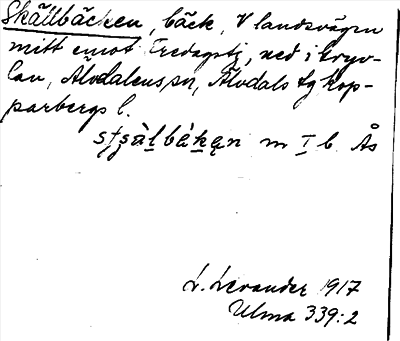 Skällbäcken, bäck, V landsvägen
mitt emot Fredagstj, ned i Gryv-
lan, Älvdalens sn, Älvdals tg Kop-
parbergs l.
m I b. Ås
L. Levander 1917
Ulma 339:2